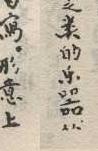 之类的乐器。以
写。形意上